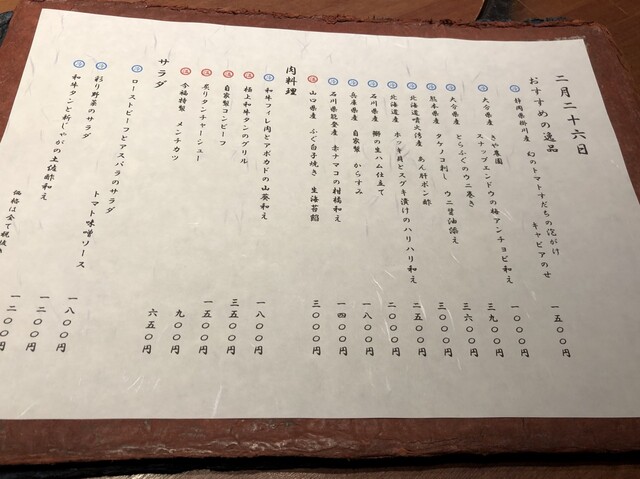 二月二十六日
おすすめの逸品
冷 静岡県掛川産 幻のトマトすだちの泡がけ
キャビアのせ 一五〇〇円
冷 さや農園
スナップエンドウの梅アンチョビ和え 一〇〇〇円
冷 大分県産 とらふぐのウニ巻き 三九〇〇円
冷 熊本県産 タケノコ刺し ウニ醤油添え 三六〇〇円
冷 北海道噴火湾産 あん肝ポン酢 三〇〇〇円
冷 北海道産 ホッキ貝とスグキ漬けのハリハリ和え 二五〇〇円
冷 石川県産 鰤の生ハム仕立て 二〇〇〇円
冷 兵庫県産 自家製 からすみ 一八〇〇円
冷 石川県能登産 赤ナマコの柑橘和え 一四〇〇円
温 山口県産 ふぐ白子焼き 生海苔餡 三〇〇〇円
肉料理
冷 和牛フィレ肉とアボカドの山葵和え 一八〇〇円
温 極上和牛タンのグリル 三五〇〇円
温 自家製コンビーフ
温 炙りタンチャーシュー 一五〇〇円
温 今福特製 メンチカツ 九〇〇円
六五〇円
サラダ
冷 ローストビーフとアスパラのサラダ
トマト味噌ソース 一八〇〇円
冷 彩り野菜のサラダ 一二〇〇円
冷 和牛タンと新じゃがの土佐酢和え 一二〇〇円
価格は全て税抜き